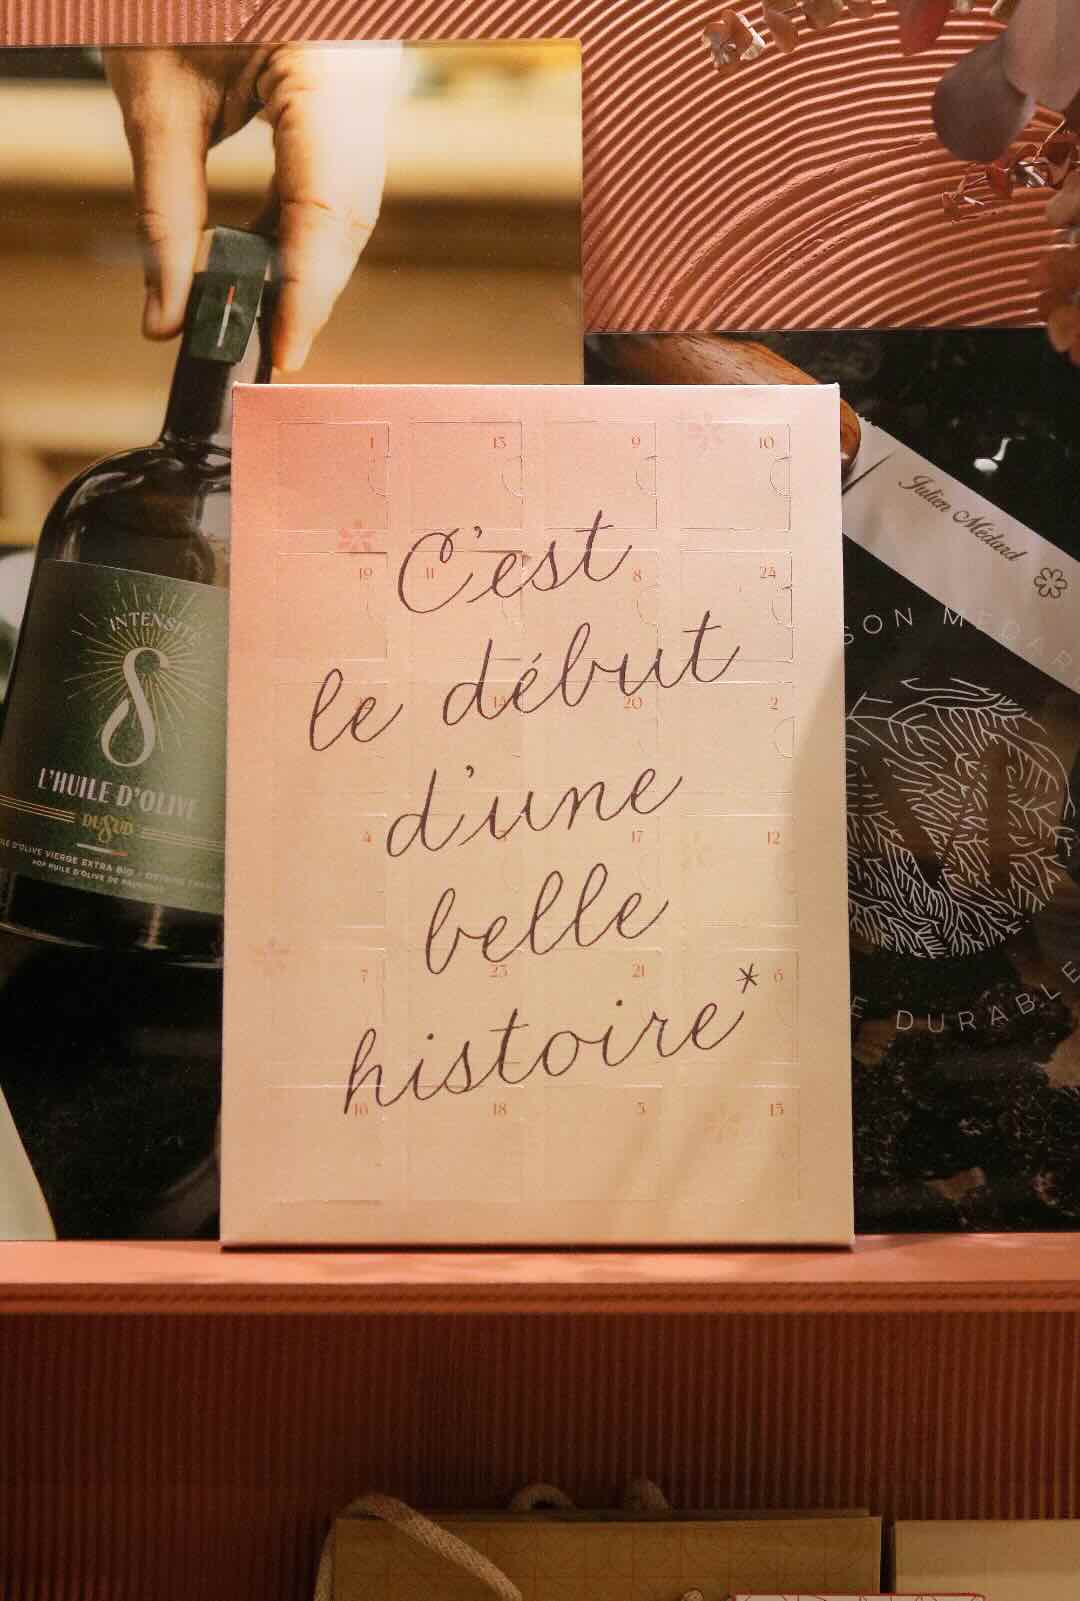 INTENSITÉ
8
L'HUILE D'OLIVE
DU SUD
HUILE D'OLIVE VIERGE EXTRA BIO / ORIGINE FRANCE
POP HUILE D'OLIVE DE PROVENCE
1 13 9 10
19 11 8 24
14 20 2
4 17 12
7 23 21 6
16 18 3 15
C'est
le début
d'une
belle
histoire*
Julien Médard
SON MÉDAR
E DURABLE